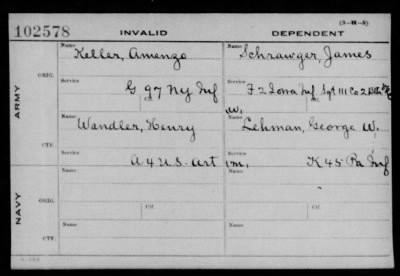 (3-H-5)
102578 INVALID DEPENDENT
Name Name
Keller, Amenzo Schrawger, James
ORIG.
Service Service
G 97 NY Inf F 2 Iowa Inf Sgt 111 Co 2
ARMY
Name W. Name
Wandler, Henry Lehman, George W.
CTF.
Service Service
A 4 U.S. Art vm. K 45 Pa Inf
Name Name
ORIG.
NAVY
Ctf. Ctf.
Name Name
CTF.